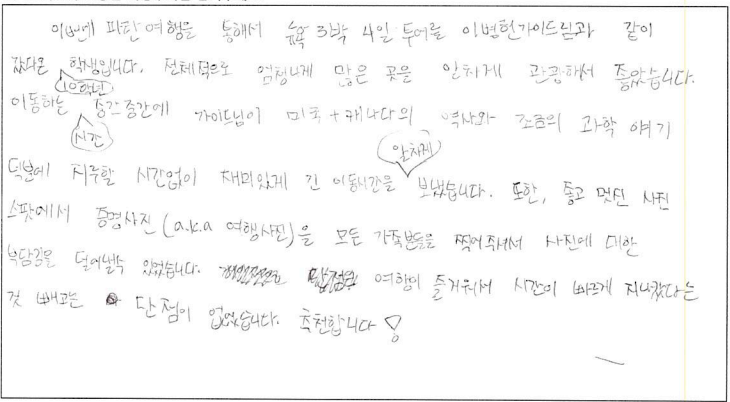 이번에 파란여행을 통해서 뉴욕 3박 4일 투어를 이병헌가이드님과 같이
갔다온 학생입니다. 전체적으로 엄청나게 많은 곳을 알차게 관광해서 좋았습니다.
10학년
이동하는 중간중간에 가이드님이 미국+캐나다의 역사와 조금의 과학 얘기
시간
알차게
덕분에 지루할 시간없이 재미있게 긴 이동시간을 보냈습니다. 또한, 좋고 멋진 사진
스팟에서 증명사진(a.k.a 여행사진)을 모든 가족분들을 찍어주셔서 사진에 대한
부담감을 덜어낼수 있었습니다. 여행이 즐거워서 시간이 빠르게 지나갔다는
것 빼고는 단점이 없었습니다. 추천합니다!